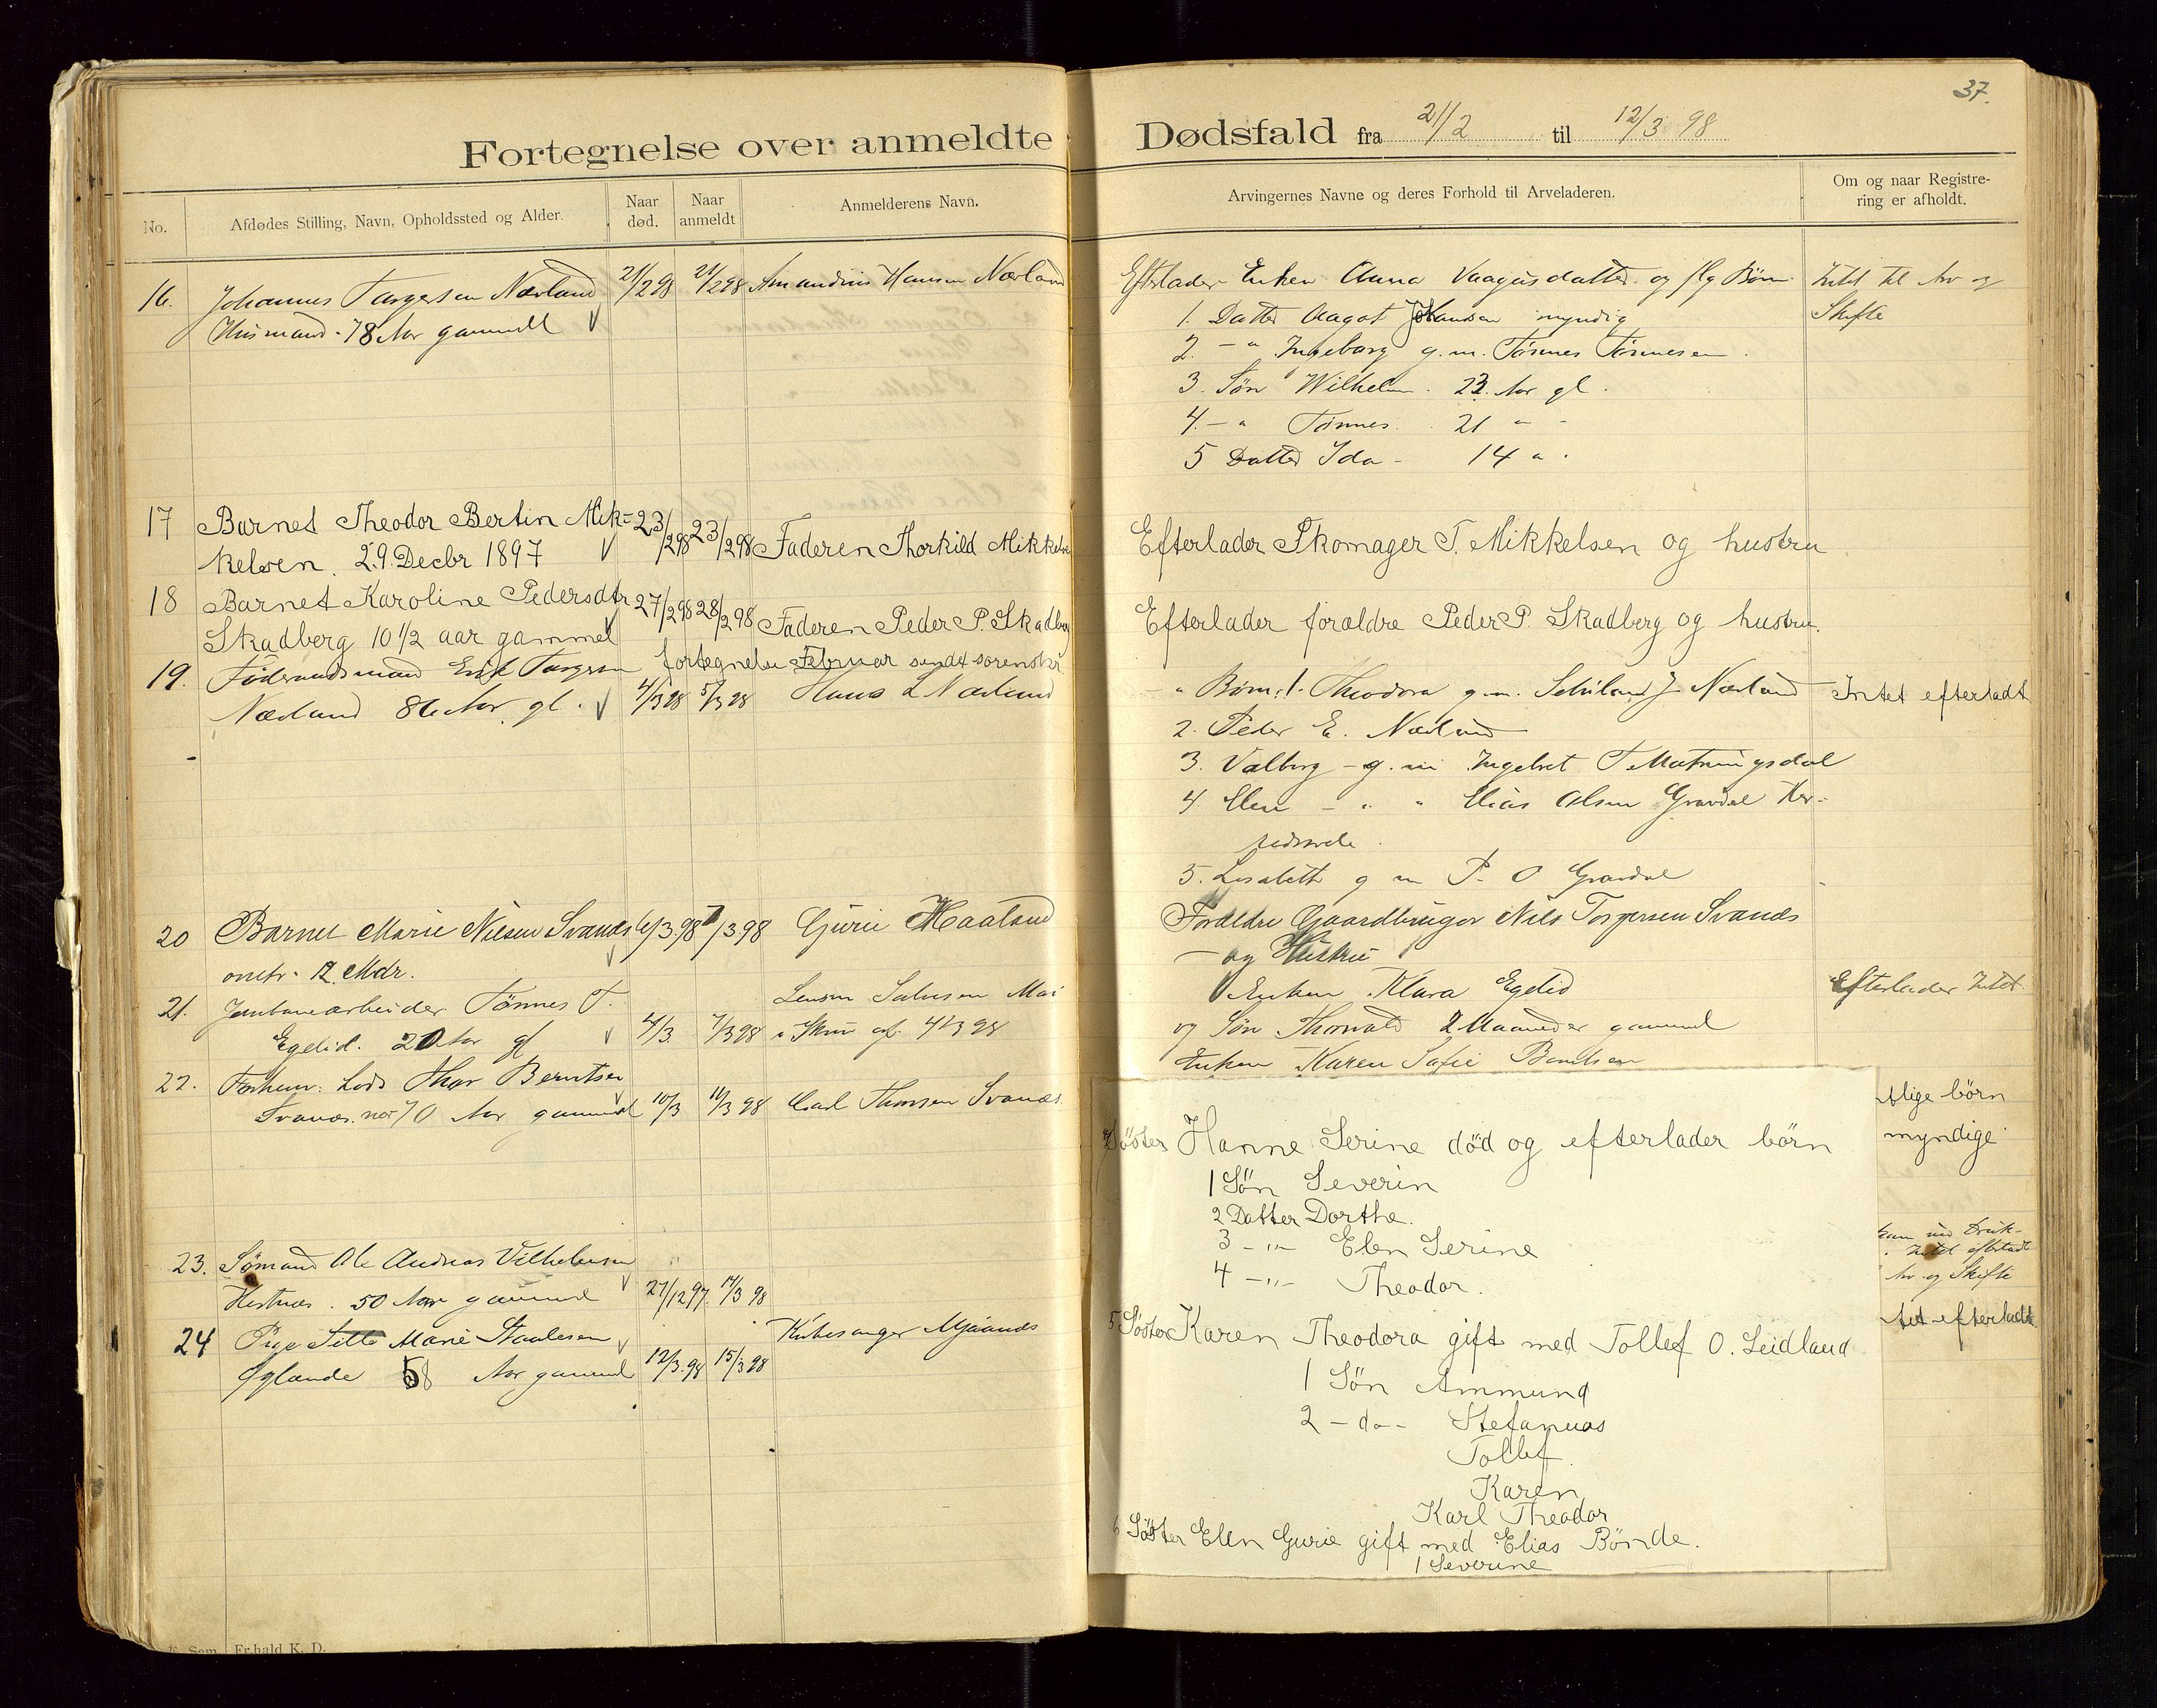 37.
Fortegnelse over anmeldte Dødsfald fra 21/2 til 12/3 98
No.
Afdødes Stilling, Navn, Opholdssted og Alder.
Naar død.
Naar anmeldt
Anmelderens Navn.
Arvingernes Navne og deres Forhold til Arveladeren.
Om og naar Registrering er afholdt.
16. Johannes Torgersen Nærland 21/2 98 21/2 98 Amandius Hansen Nærland
Husmand. 78 Aar gammel
Efterlader Enken Anna Vaagesdatter og flg Børn
1. Datter Aagot Johansen myndig
2. -"- Ingeborg g.m. Tønnes Tønnesen
3. Søn Wilhelm. 23. Aar gl.
4. -"- Tønnes. 21 " -
5 Datter Ida - 14 " .
Intet til Arv og
Skifte
17 Barnet Theodor Bertin Mik= 23/2 98 23/2 98 Faderen Thorkild Mikkelse
kelsen. 29. Decbr 1897
Efterlader Skomager T. Mikkelsen og hustru
18 Barnet Karoline Pedersdtr 27/2 98 28/2 98 Faderen Peder P. Skadberg
Skadberg 10 1/2 aar gammel
Efterlader forældre Peder P. Skadberg og hustru.
fortegnelse Februar sendt sorenskr
19. Føderaadsmand Erik Torgersen
Nærland 86 Aar gl. 4/3 98 5/3 98 Hans L Nærland
" Børn: 1. Theodora g.m. J. Nærland
2. Peder E. Nærland
3. Valborg - g.m. Ingebret T Matningsdal
4 Elen - " " Elias Olsen Gravdal Her=
redsrede.
5. Lisabeth g m P. O Gravdal
Intet efterladt
20 Barnet Marie Nilsen Svanes 6/3.98 7/3 98 Gurie Haaland
omtr. 12 Mdr.
Forældre Gaardbruger Nils Torgersen Svanes
- og Hustru
21. Jernbanearbeider Tønnes T.
Egelid. 20 Aar gl 4/3 7/3 98
Enken Klara Egelid
og Søn Thorvald 2 Maaneder gammel
Efterlader Intet.
22. Forhenv. Lods Thor Berntsen
Svanes. nær 70 Aar gammel 10/3 11/3 98 Carl Thorsen Svanes
Enken Karen Sofie Berntsen
tlige børn
myndige
4 Søster Hanne Serine død og efterlader børn
1 Søn Severin
2 Datter Dorthe.
3 -"- Elen Serine
4 -"- Theodor.
5 Søster Karen Theodora gift med Tollef O. Leidland
1 Søn Ammund
2 - do - Stefanuas
Tollef.
Karen
Karl Theodor
6 Søster Elen Gurie gift med Elias Bønde.
1 Severine
23. Sømand Ole Andreas Vilhelmsen
Hestnes. 50 Aar gammel 27/12 97. 14/3 98
Intet efterladt
Arv og Skifte
24 Pige Marie Staalesen
Øglænde 58 Aar gammel 12/3.98 15/3 98
Kirkesanger Mjaanes
tet efterladt.